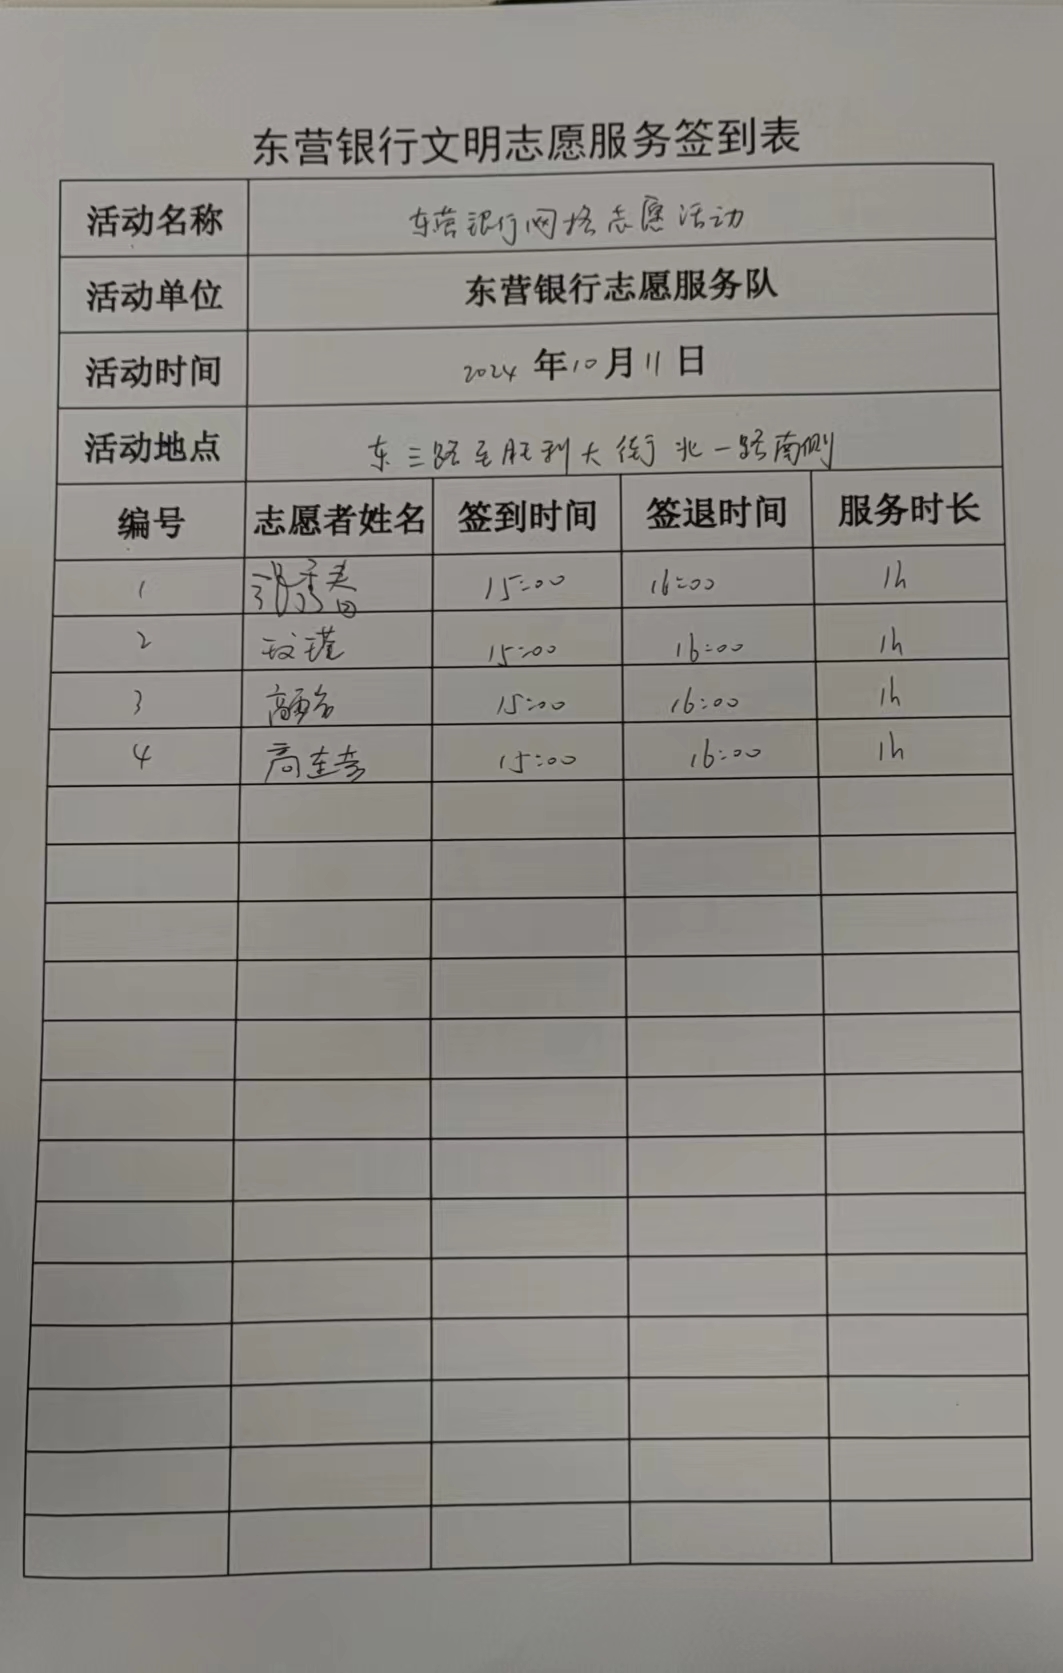 东营银行文明志愿服务签到表
活动名称 东营银行网格志愿活动
活动单位 东营银行志愿服务队
活动时间 2024年10月11日
活动地点 东三路至胜利大街北一路南侧
编号 志愿者姓名 签到时间 签退时间 服务时长
1 15:00 16:00 1h
2 15:00 16:00 1h
3 15:00 16:00 1h
4 高 15:00 16:00 1h